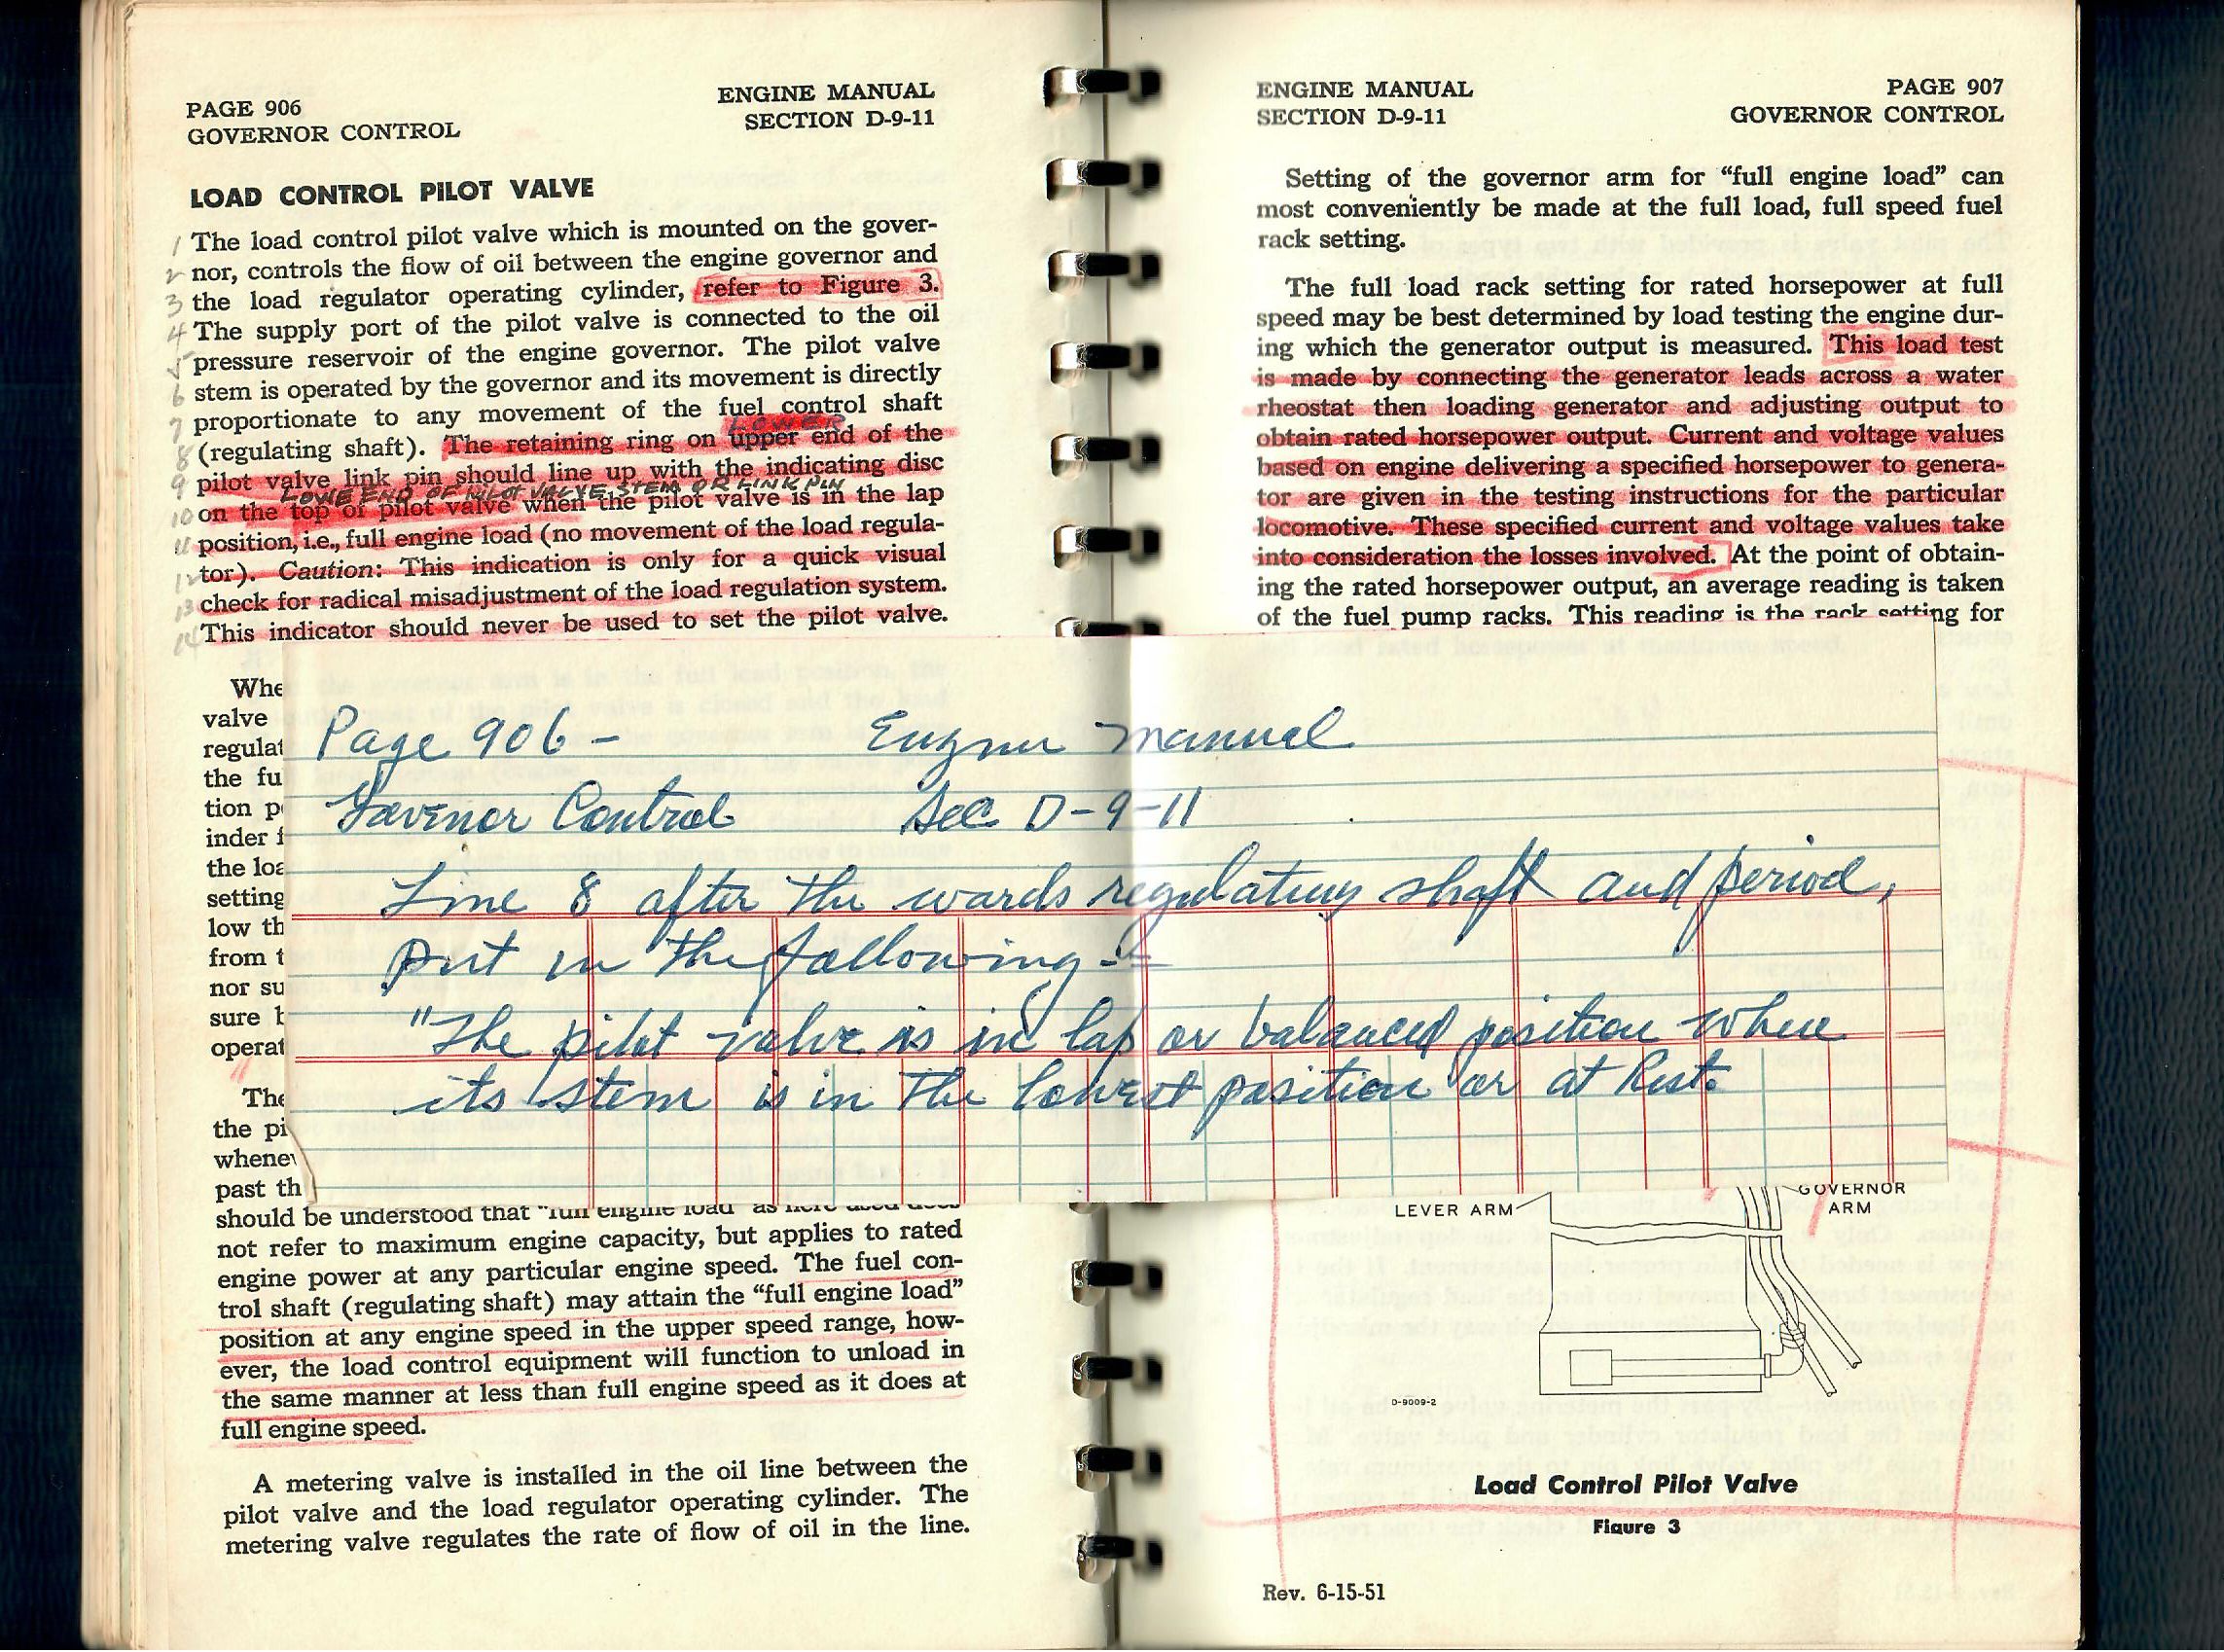 PAGE 906
ENGINE MANUAL
GOVERNOR CONTROL
SECTION D-9-11
LOAD CONTROL PILOT VALVE
1 The load control pilot valve which is mounted on the gover-
2 nor, controls the flow of oil between the engine governor and
3 the load regulator operating cylinder, refer to Figure 3.
4 The supply port of the pilot valve is connected to the oil
5 pressure reservoir of the engine governor. The pilot valve
6 stem is operated by the governor and its movement is directly
7 proportionate to any movement of the fuel control shaft
LOWER
8 (regulating shaft). The retaining ring on upper end of the
9 pilot valve link pin should line up with the indicating disc
LOWE END OF PILOT VALVE STEM OR LINK PIN
10 on the top of pilot valve when the pilot valve is in the lap
11 position, i.e., full engine load (no movement of the load regula-
12 tor). Caution: This indication is only for a quick visual
13 check for radical misadjustment of the load regulation system.
14 This indicator should never be used to set the pilot valve.
Whe
valve
regulat
the fu
tion p
inder f
the loa
setting
low th
from t
nor su
sure b
operat
The
the pi
whenev
past th
should be understood that "full engine load" as here used does
not refer to maximum engine capacity, but applies to rated
engine power at any particular engine speed. The fuel con-
trol shaft (regulating shaft) may attain the "full engine load"
position at any engine speed in the upper speed range, how-
ever, the load control equipment will function to unload in
the same manner at less than full engine speed as it does at
full engine speed.
A metering valve is installed in the oil line between the
pilot valve and the load regulator operating cylinder. The
metering valve regulates the rate of flow of oil in the line.
Page 906 - Engine Manual
Govenor Control Sec D-9-11
Line 8 after the words regulating shaft and period,
put in the following -
"The pilot valve is in lap or balanced position when
its stem is in the lowest position or at Rest.
ENGINE MANUAL
PAGE 907
SECTION D-9-11
GOVERNOR CONTROL
Setting of the governor arm for "full engine load" can
most conveniently be made at the full load, full speed fuel
rack setting.
The full load rack setting for rated horsepower at full
speed may be best determined by load testing the engine dur-
ing which the generator output is measured. This load test
is made by connecting the generator leads across a water
rheostat then loading generator and adjusting output to
obtain rated horsepower output. Current and voltage values
based on engine delivering a specified horsepower to genera-
tor are given in the testing instructions for the particular
locomotive. These specified current and voltage values take
into consideration the losses involved. At the point of obtain-
ing the rated horsepower output, an average reading is taken
of the fuel pump racks. This reading is the rack setting for
LEVER ARM
GOVERNOR
ARM
D-9009-2
Load Control Pilot Valve
Figure 3
Rev. 6-15-51